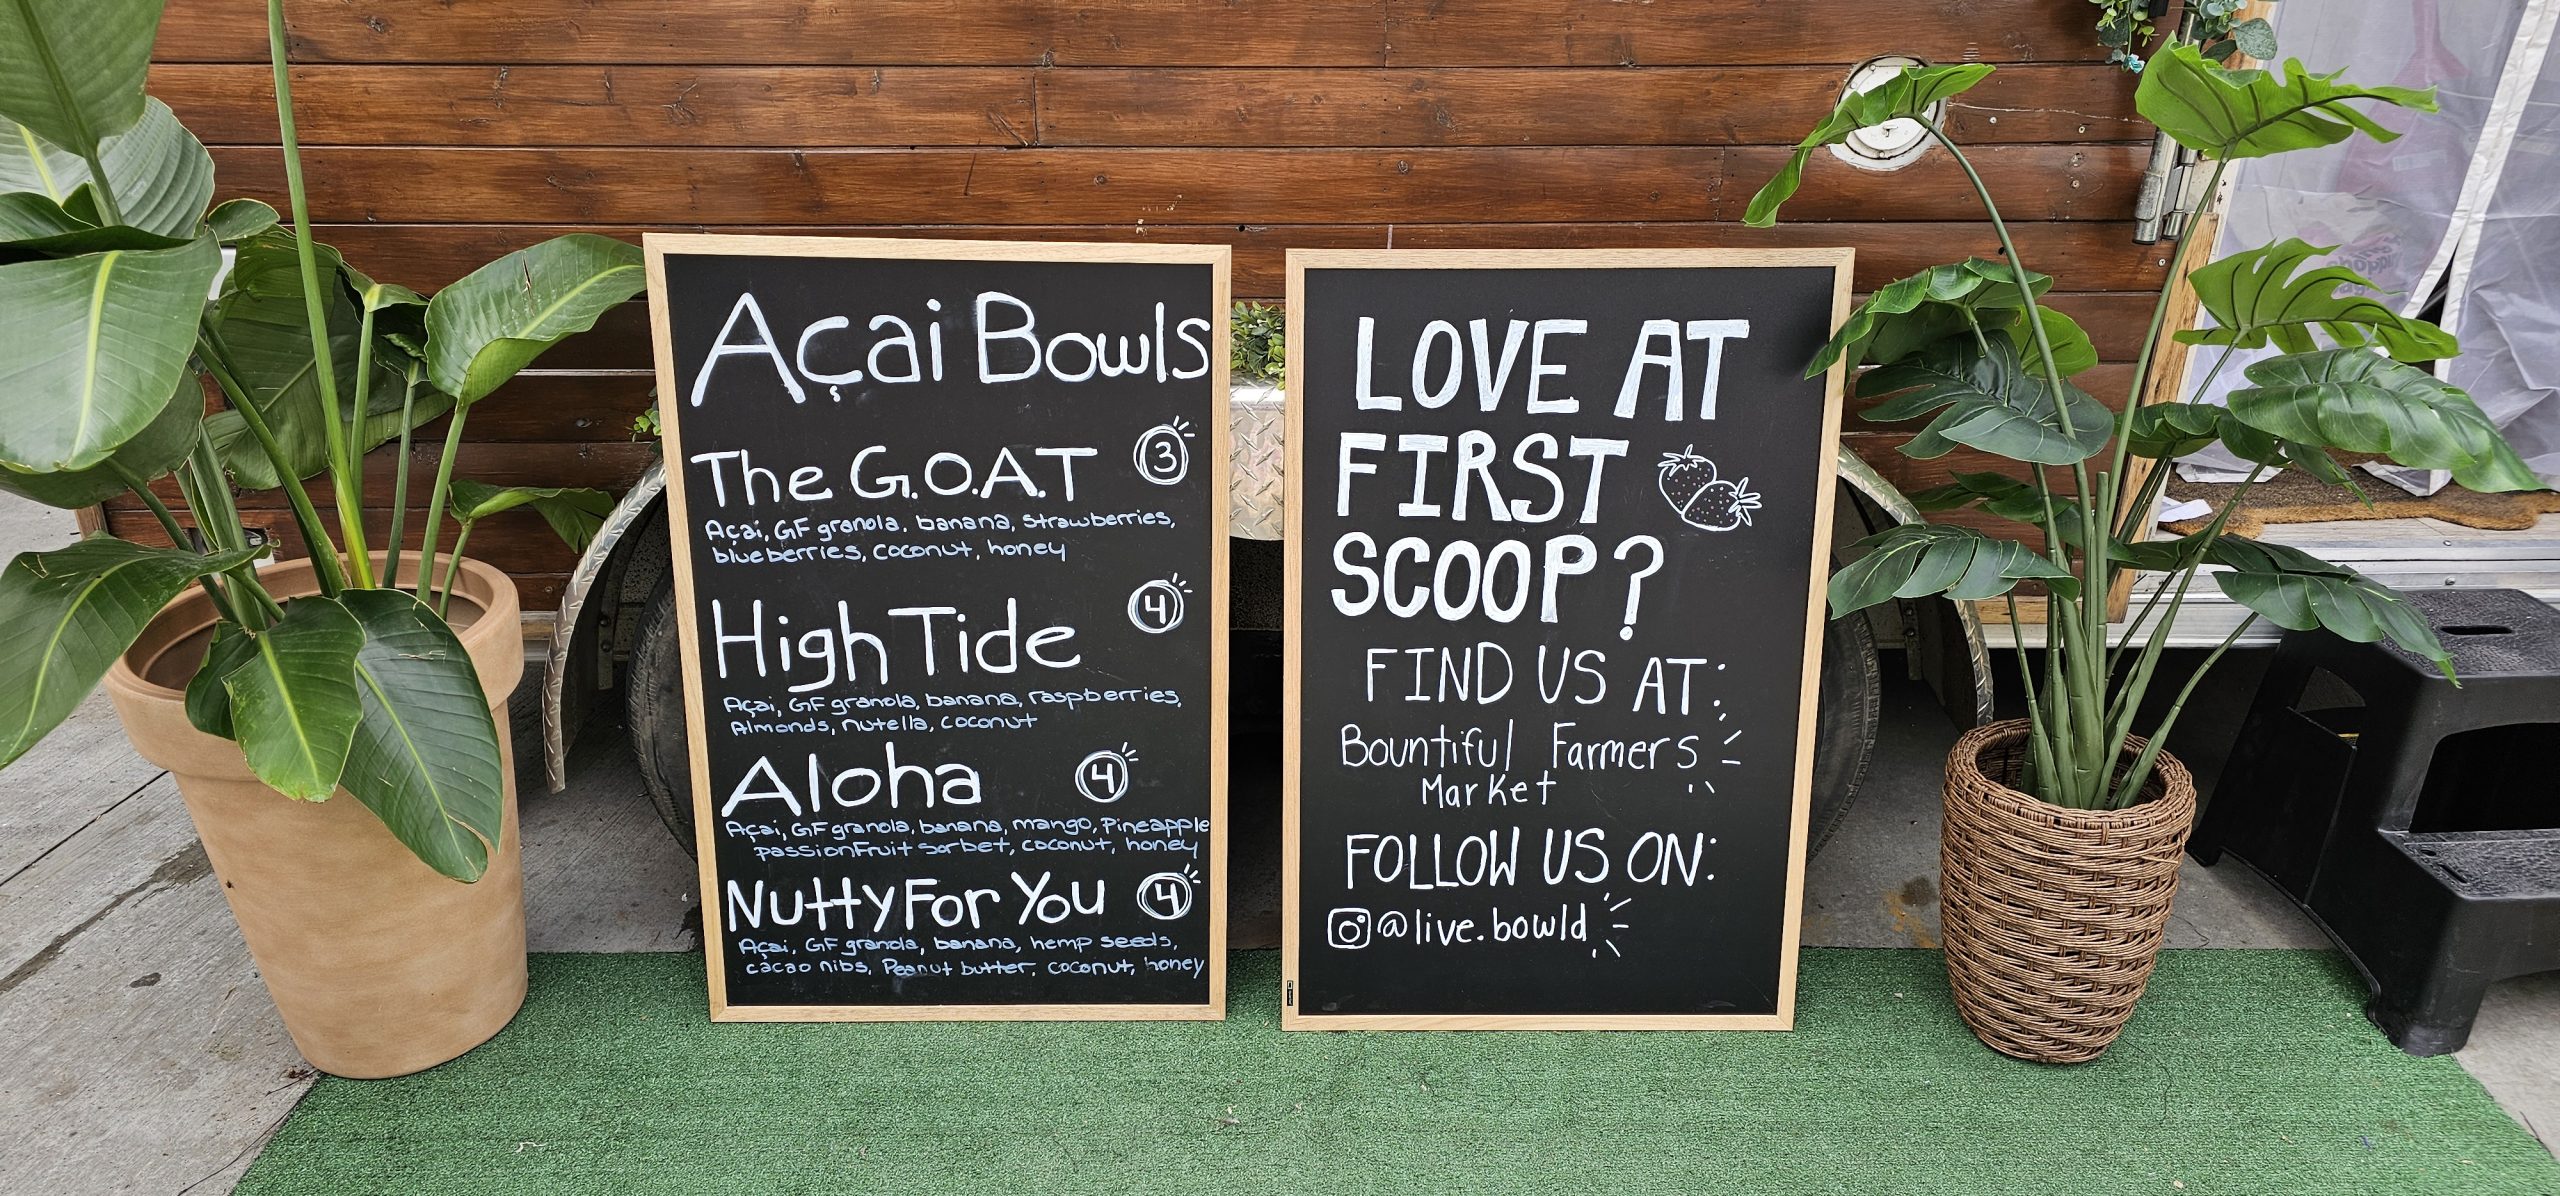 Açai Bowls
The G.O.A.T 3
Açai, GF granola, banana, strawberries,
blueberries, coconut, honey
High Tide 4
Açai, GF granola, banana, raspberries,
Almonds, nutella, coconut
Aloha 4
Açai, GF granola, banana, mango, Pineapple
passionfruit sorbet, coconut, honey
Nutty For You 4
Açai, GF granola, banana, hemp seeds,
cacao nibs, Peanut butter, coconut, honey
LOVE AT
FIRST
SCOOP?
FIND US AT:
Bountiful Farmers
Market
FOLLOW US ON:
@live.bowld